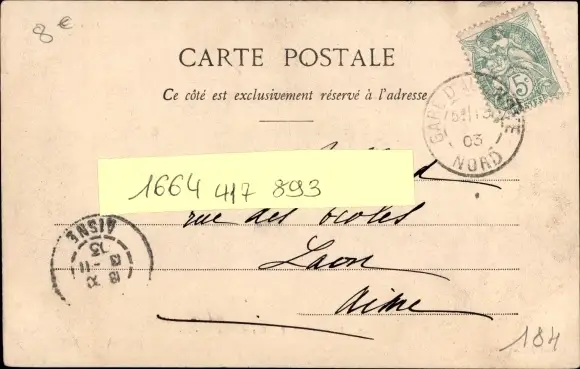 8 €
CARTE POSTALE
Ce côté est exclusivement réservé à l'adresse
5c
GARE D'
03
NORD
1664 417 893
rue des écoles
Laon
Aisne
AISNE
03
184